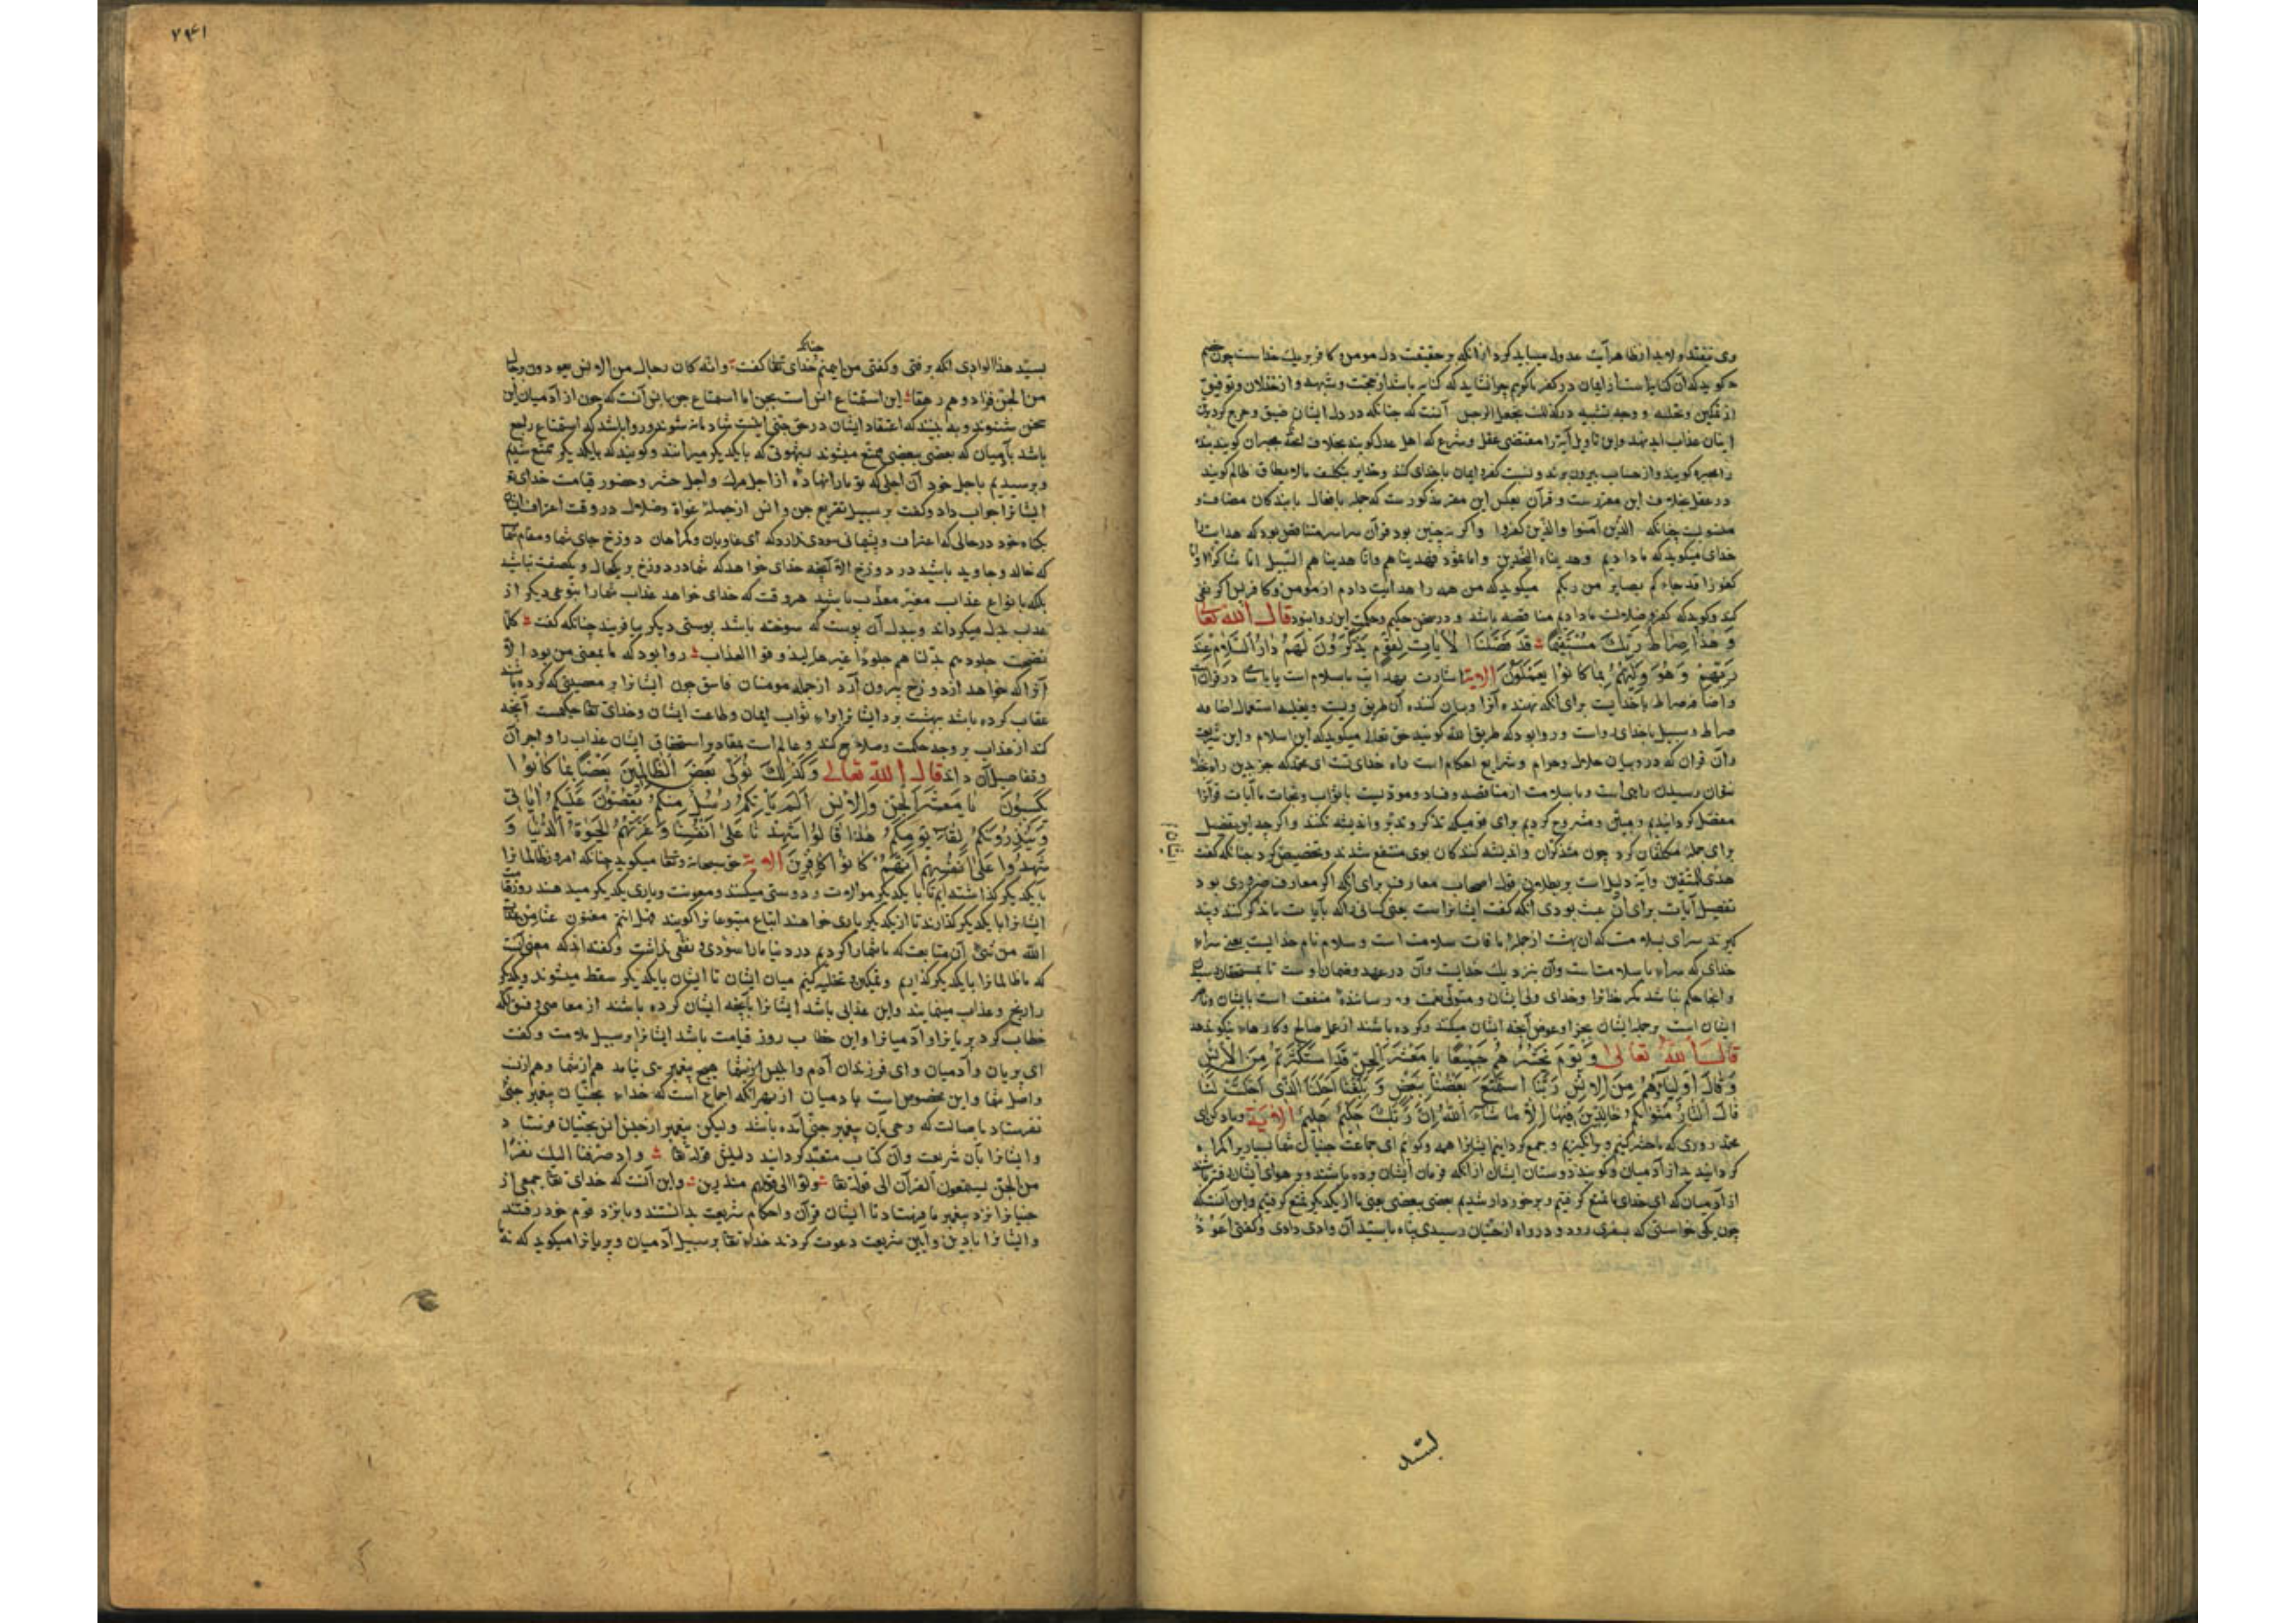 وی نیفتد ولابد از ظاهر آیت عدول میباید کرد از آنکه بر حقیقت دل مومن و کافر بریک خداست چون خصم
گوید که آن کنایتست از ایمان و کفر ما گوییم چرا نشاید که کنایه باشد از محبت و شبهه و از خذلان و توفیق
از تمکین و تخلیه و وجه تشبیه در کذلک یجعل الرجس آنست که چنانکه در دل ایشان ضیق و حرج کرد
ایشان عذاب ابد نهد واین تاویل آیة را مقتضی عقل و شرع که اهل عدل گویند بخلاف مجبران گویند بنده
را مجبره گویند و از حساب بیرون برند و نسبت کفر و ایمان با خدای کنند و خدایرا بتکلیف مالایطاق ظالم گویند
در عقل خلاف این مقررست و قرآن بعکس این مقر مذکورست که جمله با فعال با بندکان مضافست و
منسوبست چنانکه الذین آمنوا والذین کفروا واگر نه چنین بود قرآن سراسر متناقض بود که هدایت را
خدای میگوید که ما دادیم وهدیناه النجدین واما ثمود فهدیناهم وانا هدیناهم السبیل اما شاکرا و
کفورا قد جاءکم بصایر من ربکم میگوید که من همه را هدایت دادم از مومن و کافر پس اگر نفی
کند و گوید که کفر و ضلالت ما دادیم مناقضه باشد و در سخن حکیم و حکمت این روا نبود قال الله تعا
وَهٰذَا صِرَاطُ رَبِّكَ مُسْتَقِيمًا قَدْ فَصَّلْنَا الْآيَاتِ لِقَوْمٍ يَذَّكَّرُونَ لَهُمْ دَارُ السَّلَامِ عِنْدَ
رَبِّهِمْ وَهُوَ وَلِيُّهُمْ بِمَا كَانُوا يَعْمَلُونَ الایة اشارت بهدا یا با سلام است یا با در قرآن
واضافه صراط با خدایست برای آنکه نهنده آنرا و بیان کننده آن طریق ویست
صراط و سبیل با خدای رواست و روا بود که طریق الله گویند حق تعالی میگوید که این اسلام و این شریعت
وآن قرآن که در و بیان حلال و حرام و شرایع احکام است راه خدای تست ای محمد که جز بدین راه
نتوان رسیدن راهی است و با سلامت از مناقضه و فساد و مودیست با ثواب و نجات ما آیات قرآنرا
مفصل کردانیدیم و مبین و مشروح کردیم برای قومیکه تذکر و تدبر و اندیشه کنند واگرچه این تفصیل
برای جمله مکلفان کرد چون متذکران و اندیشه کنندکان بوی منتفع شدند و تخصیص کرد چنانکه گفت
هدی للمتقین وآیة دلیل است بر بطلان قول اصحاب معارف برای آنکه اگر معارف ضروری بود
تفصیل آیات برای آن عبث بودی آنکه گفت ایشانراست یعنی کسانی را که بآیات ما تذکر کنند و پند
گیرند سرای بسلامت که آن بهشت از جمله آفات سلامت است و سلام نام خدایست یعنی سرای
خدای که سرای با سلامتست وآن بنزدیک خدایست وآن در عهد و ضمان اوست تا بمستحقان
وآنجا حکم نباشد مگر خدایرا و خدای ولی ایشان و متولی نعمت و رساننده منفعت است بایشان و ناصر
ایشان است بر جمله ایشان بجزا و عوض آنچه ایشان میکنند و کرده باشند از عمل صالح و کارهای نیکو
قال الله تعالی وَيَوْمَ نَحْشُرُهُمْ جَمِيعًا يَا مَعْشَرَ الْجِنِّ قَدِ اسْتَكْثَرْتُمْ مِنَ الْاِنْسِ
وَقَالَ اَوْلِيَاؤُهُمْ مِنَ الْاِنْسِ رَبَّنَا اسْتَمْتَعَ بَعْضُنَا بِبَعْضٍ وَبَلَغْنَا اَجَلَنَا الَّذِي اَجَّلْتَ لَنَا
قَالَ النَّارُ مَثْوَاكُمْ خَالِدِينَ فِيهَا اِلَّا مَا شَاءَ اللهُ اِنَّ رَبَّكَ حَكِيمٌ عَلِيمٌ الایة ویاد کن ای
محمد روزی که ما حشر کنیم و برانگیزیم و جمع کردانیم ایشانرا همه و گوئیم ای جماعت جنیان شما بسیار گمراه
کردانیدید از آدمیان و گویند دوستان ایشان از آنکه فرمان ایشان برده باشند و بر هوای ایشان رفته
از آدمیان که ای خدای ما تمتع گرفتیم و برخوردار شدیم بعضی ببعضی یعنی ما از یکدیگر تمتع گرفتیم و این آنست که
چون یکی خواستی که بسفری رود و در راه از جنیان رسیدی پناه با سید آن وادی دادی و گفتی اعوذ
بسید
۷۴۱
چنانکه
بسید هذا الوادی آنکه برفتی و گفتی من ایمنم خدای تعا گفت وانه کان رجال من الانس یعوذون برجال
من الجن فزادوهم رهقا این استمتاع انس است بجن اما استمتاع جن بانس آنست که چون از آدمیان این
سخن شنوند و بینند که اعتقاد ایشان در حق جنی اینست شادمانه شوند و روا باشد که استمتاع راجع
باشد بآدمیان که بعضی ببعضی متمتع میشوند بشهوتی که با یکدیگر میرانند و گویند که با یکدیگر متمتع شدیم
و برسیدیم باجل خود آن اجلی که تو ما را نهاده از اجل مرگ و اجل حشر و حضور قیامت خدای تعا
ایشانرا جواب داد و گفت بر سبیل تقریع جن و انس از جملهٔ غواة و ضلال در وقت اعتراف ایشان
بگناه خود در حالی که اعتراف و پشیمانی سودی ندارد که ای غاویان و گمراهان دوزخ جای شما و مقام شما
که خالد و جاوید باشید در دوزخ الا آنچه خدای خواهد که شما در دوزخ بریکحال و یکصفت نباشید
بلکه بانواع عذاب مغیر معذب باشید هر وقت که خدای خواهد عذاب شما را بنوعی دیگر از
عذاب بدل میگرداند و بدل آن پوست که سوخته باشد پوستی دیگر بیافریند چنانکه گفت کلما
نضجت جلودهم بدلناهم جلودا غیرها لیذوقوا العذاب روا بود که ما بمعنی من بود الا
آنرا که خواهد از دوزخ بیرون آرد از جمله مومنان فاسق چون ایشانرا بر معصیتی که کرده باشند
عقاب کرده باشد بهشت برد ایشانرا برای ثواب ایمان و طاعت ایشان و خدای تعا حکیمست آنچه
کند از عذاب بر وجه حکمت و صلاح کند و عالم است بمقادیر استحقاق ایشان عذاب را و اجر آن
و تفاصیل آن داند قال الله تعالی وَكَذٰلِكَ نُوَلِّي بَعْضَ الظَّالِمِينَ بَعْضًا بِمَا كَانُوا
يَكْسِبُونَ يَا مَعْشَرَ الْجِنِّ وَالْاِنْسِ اَلَمْ يَأْتِكُمْ رُسُلٌ مِنْكُمْ يَقُصُّونَ عَلَيْكُمْ آيَاتِي
وَيُنْذِرُونَكُمْ لِقَاءَ يَوْمِكُمْ هٰذَا قَالُوا شَهِدْنَا عَلَى اَنْفُسِنَا وَغَرَّتْهُمُ الْحَيٰوةُ الدُّنْيَا وَ
شَهِدُوا عَلَى اَنْفُسِهِمْ اَنَّهُمْ كَانُوا كَافِرِينَ الایة حق سبحانه وتعا میگوید چنانکه امروز ظالمانرا
با یکدیگر گذاشته ایم تا با یکدیگر موالات و دوستی میکنند و معونت و یاری یکدیگر میدهند روز قیامت
ایشانرا با یکدیگر گذارند تا از یکدیگر یاری خواهند اتباع متبوعانرا گویند فهل انتم مغنون عنا من عذاب
الله من شیء آن متابعت که ما شما را کردیم در دنیا ما را سودی و نفعی نداشت و گفته اند که معنی آنست
که ما ظالمانرا با یکدیگر گذاریم و تمکین و تخلیه کنیم میان ایشان تا ایشان با یکدیگر سقط میشوند و یکدیگر
را رنج و عذاب مینمایند واین عذابی باشد ایشانرا بآنچه ایشان کرده باشند از معاصی و فسق آنکه
خطاب کرد پریانرا و آدمیانرا واین خطاب روز قیامت باشد ایشانرا بر سبیل ملامت و گفت
ای پریان و آدمیان وای فرزندان آدم و ابلیس از شما هیچ پیغمبری نیامد هم از شما وهم از
واصل شما واین مخصوص است بآدمیان از بهر آنکه اجماع است که خدای بجنیان پیغمبر جنی
نفرستاد باصالت که وحی بآن پیغمبر جنی آمده باشد ولیکن پیغمبر از جنس انس بجنیان فرستاد
وایشانرا بآن شریعت وآن کتاب متعبد گردانید دلیلش قوله تعا واذ صرفنا الیک نفرا
من الجن یستمعون القرآن الی قوله تعا ولوا الی قومهم منذرین واین آنست که خدای تعا جمعی از
جنیانرا نزد پیغمبر ما فرستاد تا ایشان قرآن و احکام شریعت بدانستند و با نزد قوم خود رفتند
وایشانرا بادین و آیین شریعت دعوت کردند خدای تعا بر سبیل آدمیان و پریانرا میگوید که نه